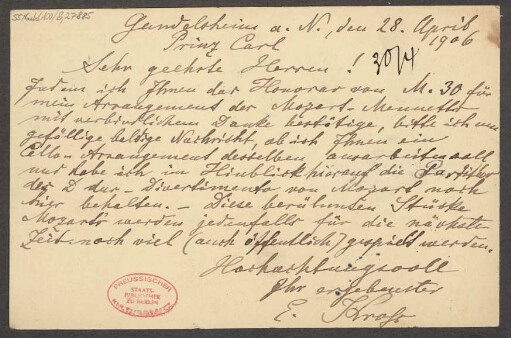 55 Nachl 100/B, 27885
Gundelsheim a. N., den 28. April
Prinz Carl 1906
30/4
Sehr geehrte Herren!
Indem ich Ihnen das Honorar von M. 30 für
mein Arrangement der Mozart-Menuette
mit verbindlichem Danke bestätige, bitte ich um
gefällige baldige Nachricht, ob ich Ihnen ein
Cello-Arrangement desselben ausarbeiten soll
und habe ich im Hinblick hierauf die Partitur
des D dur-Divertimento von Mozart noch
hier behalten. - Diese berühmten Stücke
Mozart's werden jedenfalls für die nächste
Zeit noch viel (auch öffentlich) gespielt werden.
Hochachtungsvoll
Ihr ergebenster
E. Kross
PREUSSISCHER
STAATS-
BIBLIOTHEK
ZU BERLIN